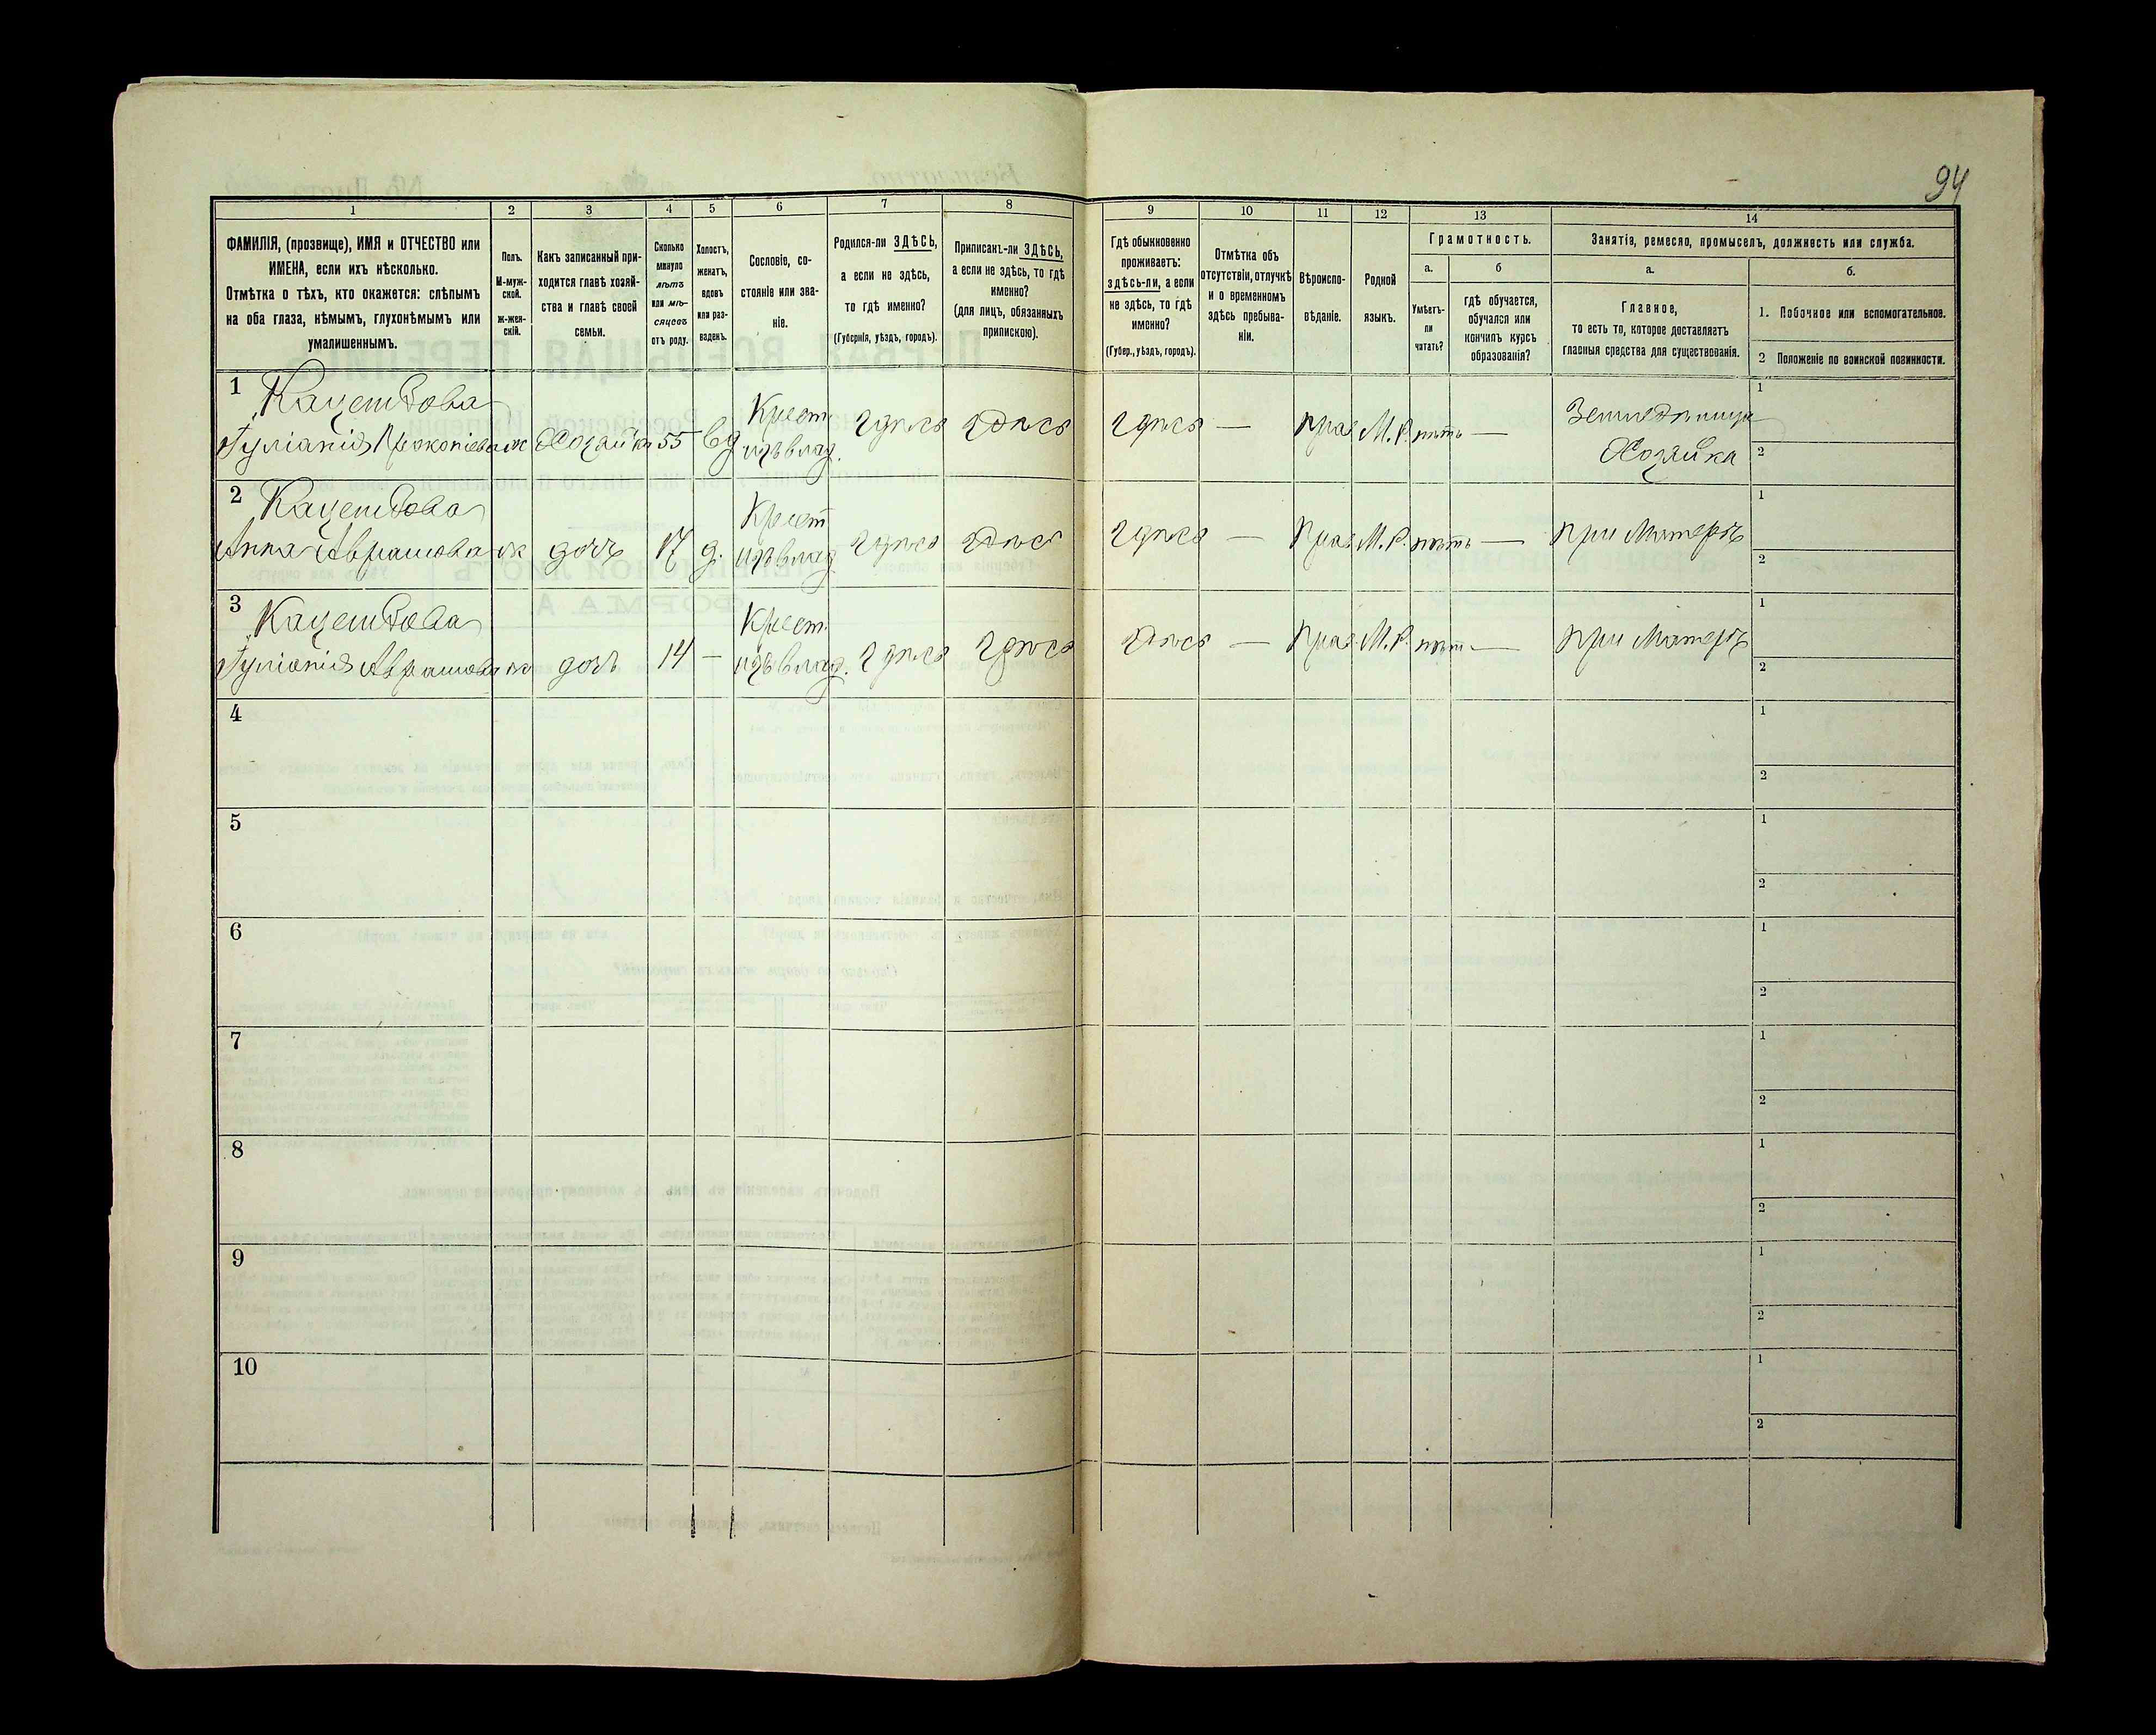 94
1 2 3 4 5 6 7 8 9 10 11 12 13 14
ФАМИЛІЯ, (прозвище), ИМЯ и ОТЧЕСТВО или
ИМЕНА, если ихъ нѣсколько.
Отмѣтка о тѣхъ, кто окажется: слѣпымъ
на оба глаза, нѣмымъ, глухонѣмымъ или
умалишеннымъ.
Полъ.
М-муж-
ской.
ж-жен-
скій.
Какъ записанный при-
ходится главѣ хозяй-
ства и главѣ своей
семьи.
Сколько
минуло
лѣтъ
или мѣ-
сяцевъ
отъ роду.
Холостъ,
женатъ,
вдовъ
или раз-
веденъ.
Сословіе, со-
стояніе или зва-
ніе.
Родился-ли ЗДѢСЬ,
а если не здѣсь,
то гдѣ именно?
(Губернія, уѣздъ, городъ).
Приписанъ-ли ЗДѢСЬ,
а если не здѣсь, то гдѣ
именно?
(для лицъ, обязанныхъ
припискою).
Гдѣ обыкновенно
проживаетъ:
здѣсь-ли, а если
не здѣсь, то гдѣ
именно?
(Губер., уѣздъ, городъ).
Отмѣтка объ
отсутствіи, отлучкѣ
и о временномъ
здѣсь пребыва-
ніи.
Вѣроиспо-
вѣданіе.
Родной
языкъ.
Грамотность.
а.
Умѣетъ-
ли
читать?
б
гдѣ обучается,
обучался или
кончилъ курсъ
образованія?
Занятіе, ремесло, промыселъ, должность или служба.
а.
Главное,
то есть то, которое доставляетъ
главныя средства для существованія.
б.
1. Побочное или вспомогательное.
2 Положеніе по воинской повинности.
1
Іуліанія Прокопіева ж Хозяйка 55 вд Крест. изъ влад. здѣсь здѣсь здѣсь — прав. М.Р. нѣтъ —
Хозяйка
1
2
2
Анна Абрамова ж дочь 17 д. Крест изъ влад. здѣсь здѣсь здѣсь — Прав. М.Р. нѣтъ — при Матерѣ
1
2
3
Іуліанія Абрамова ж дочь 14 — Крест. изъ влад. здѣсь здѣсь здѣсь — прав. М.Р. нѣтъ — при Матерѣ
1
2
4
1
2
5
1
2
6
1
2
7
1
2
8
1
2
9
1
2
10
1
2